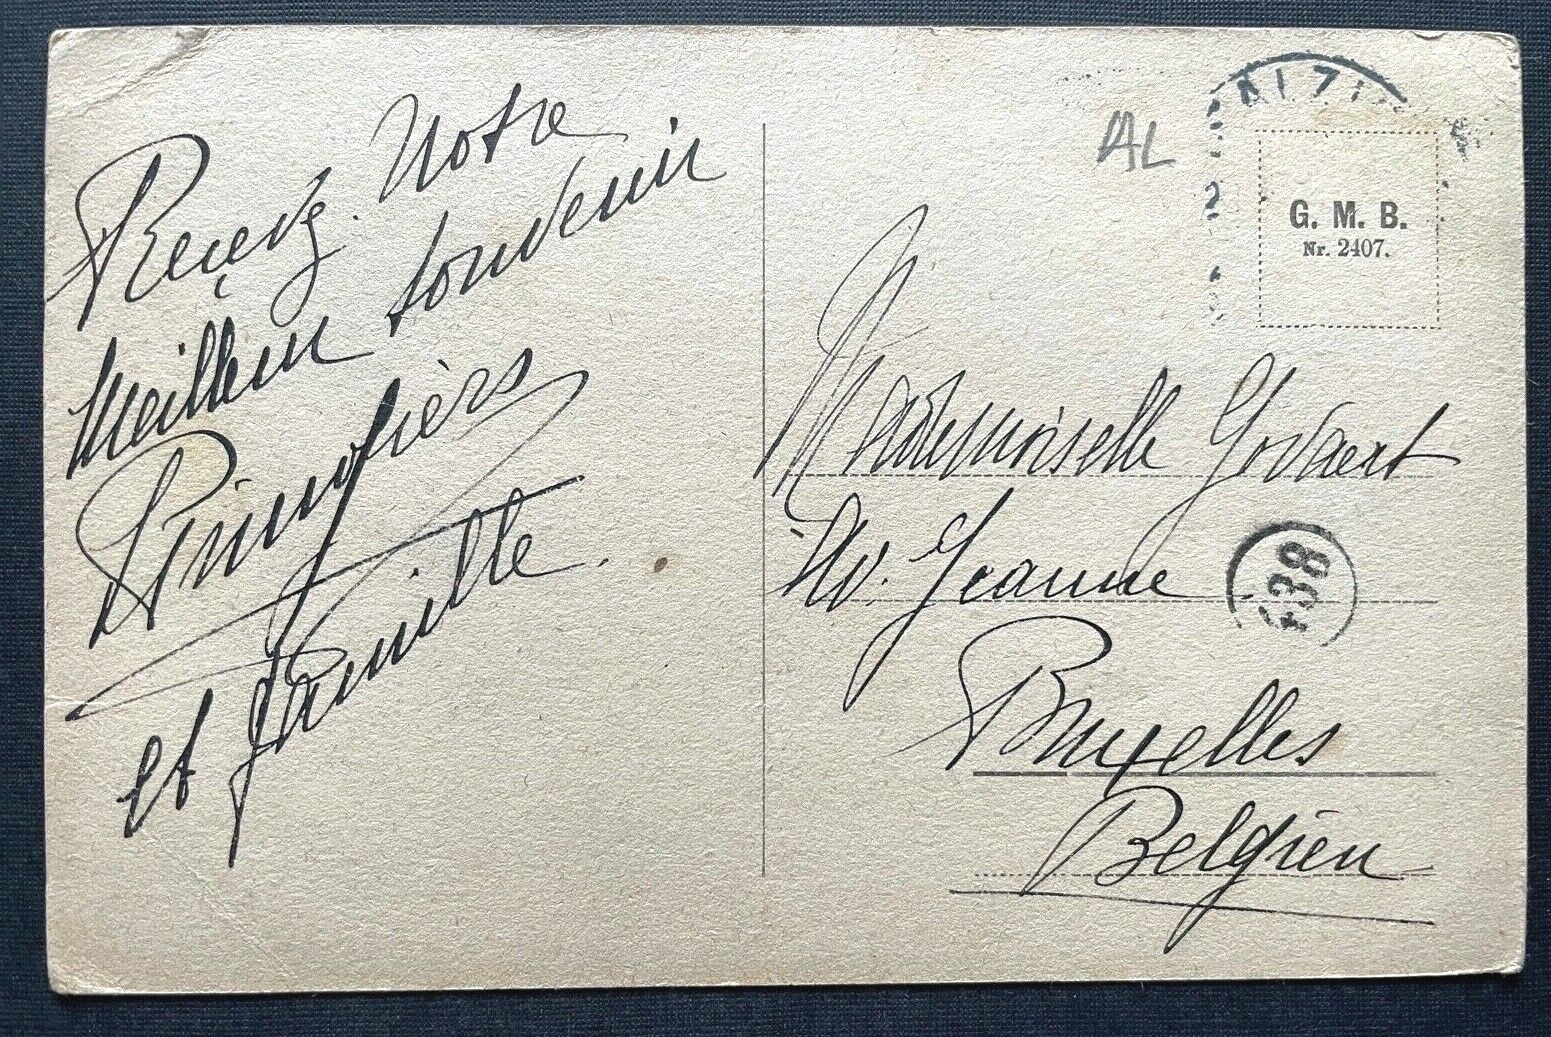 Reçevez Notre
Meilleur souvenir
et famille.
G. M. B.
Nr. 2407.
Mademoiselle Govaert
Av. Jeanne
Bruxelles
Belgien
38